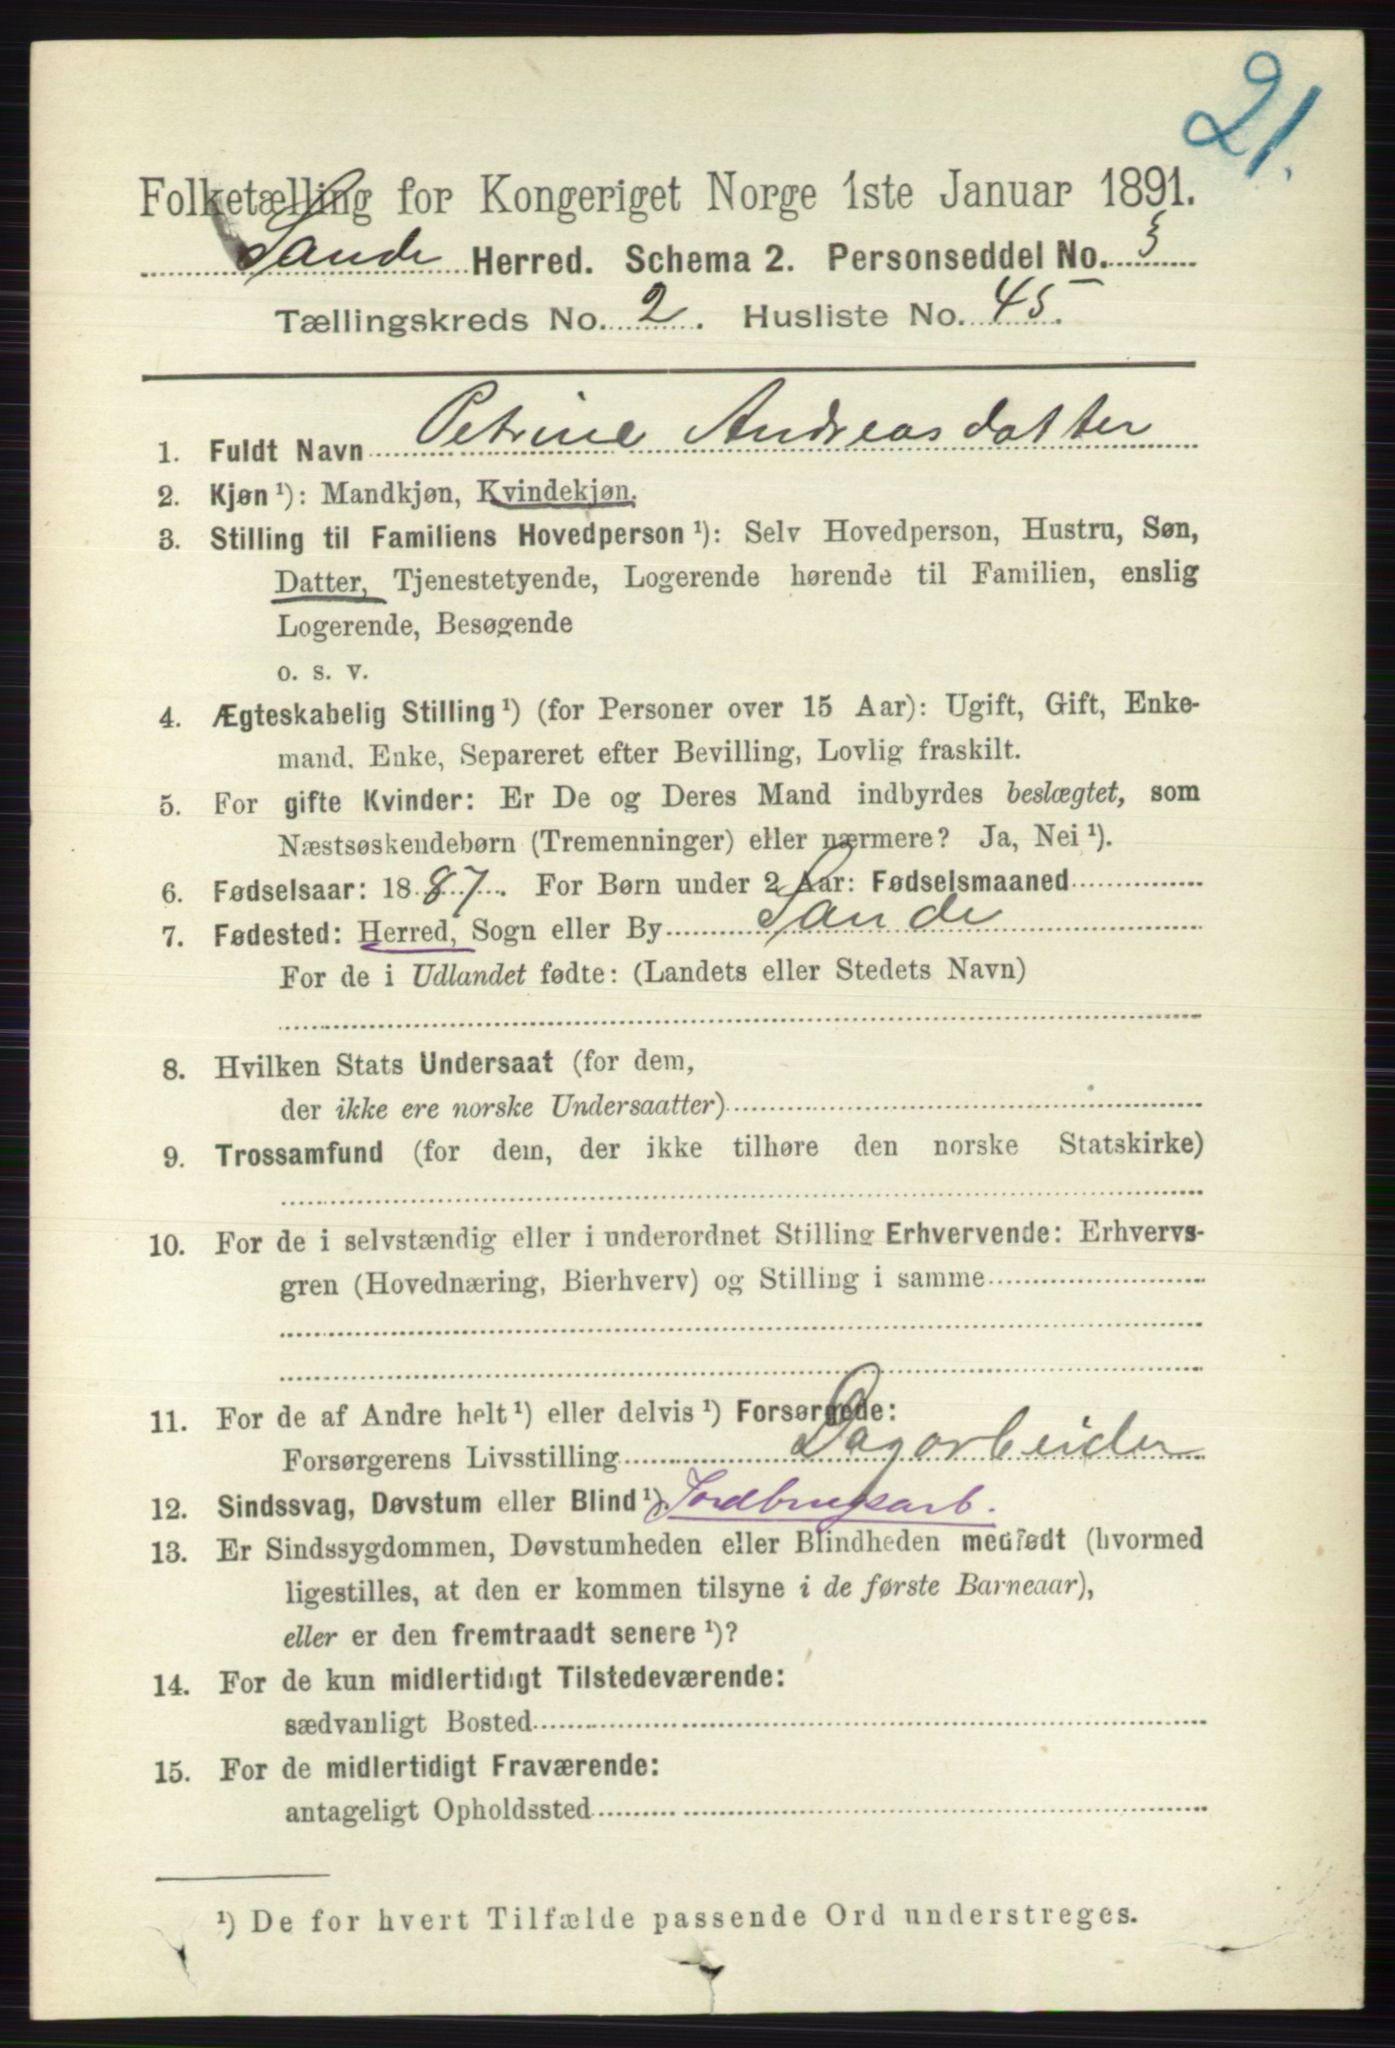 21.
Folketælling for Kongeriget Norge 1ste Januar 1891.
Sande Herred. Schema 2. Personseddel No. 3
Tællingskreds No. 2. Husliste No. 45.
1. Fuldt Navn Petrine Andreasdatter
2. Kjøn ¹): Mandkjøn, Kvindekjøn.
3. Stilling til Familiens Hovedperson ¹): Selv Hovedperson, Hustru, Søn,
Datter, Tjenestetyende, Logerende hørende til Familien, enslig
Logerende, Besøgende
o. s. v.
4. Ægteskabelig Stilling ¹) (for Personer over 15 Aar): Ugift, Gift, Enke-
mand, Enke, Separeret efter Bevilling, Lovlig fraskilt.
5. For gifte Kvinder: Er De og Deres Mand indbyrdes beslægtet, som
Næstsøskendebørn (Tremenninger) eller nærmere? Ja, Nei ¹).
6. Fødselsaar: 1887. For Børn under 2 Aar: Fødselsmaaned
7. Fødested: Herred, Sogn eller By Sande
For de i Udlandet fødte: (Landets eller Stedets Navn)
8. Hvilken Stats Undersaat (for dem,
der ikke ere norske Undersaatter)
9. Trossamfund (for dem, der ikke tilhøre den norske Statskirke)
10. For de i selvstændig eller i underordnet Stilling Erhvervende: Erhvervs-
gren (Hovednæring, Bierhverv) og Stilling i samme
11. For de af Andre helt ¹) eller delvis ¹) Forsørgede:
Forsørgerens Livsstilling Dagarbeider
12. Sindssvag, Døvstum eller Blind ¹). Jordbrugsarb.
13. Er Sindssygdommen, Døvstumheden eller Blindheden medfødt (hvormed
ligestilles, at den er kommen tilsyne i de første Barneaar),
eller er den fremtraadt senere ¹)?
14. For de kun midlertidigt Tilstedeværende:
sædvanligt Bosted
15. For de midlertidigt Fraværende:
antageligt Opholdssted
¹) De for hvert Tilfælde passende Ord understreges.